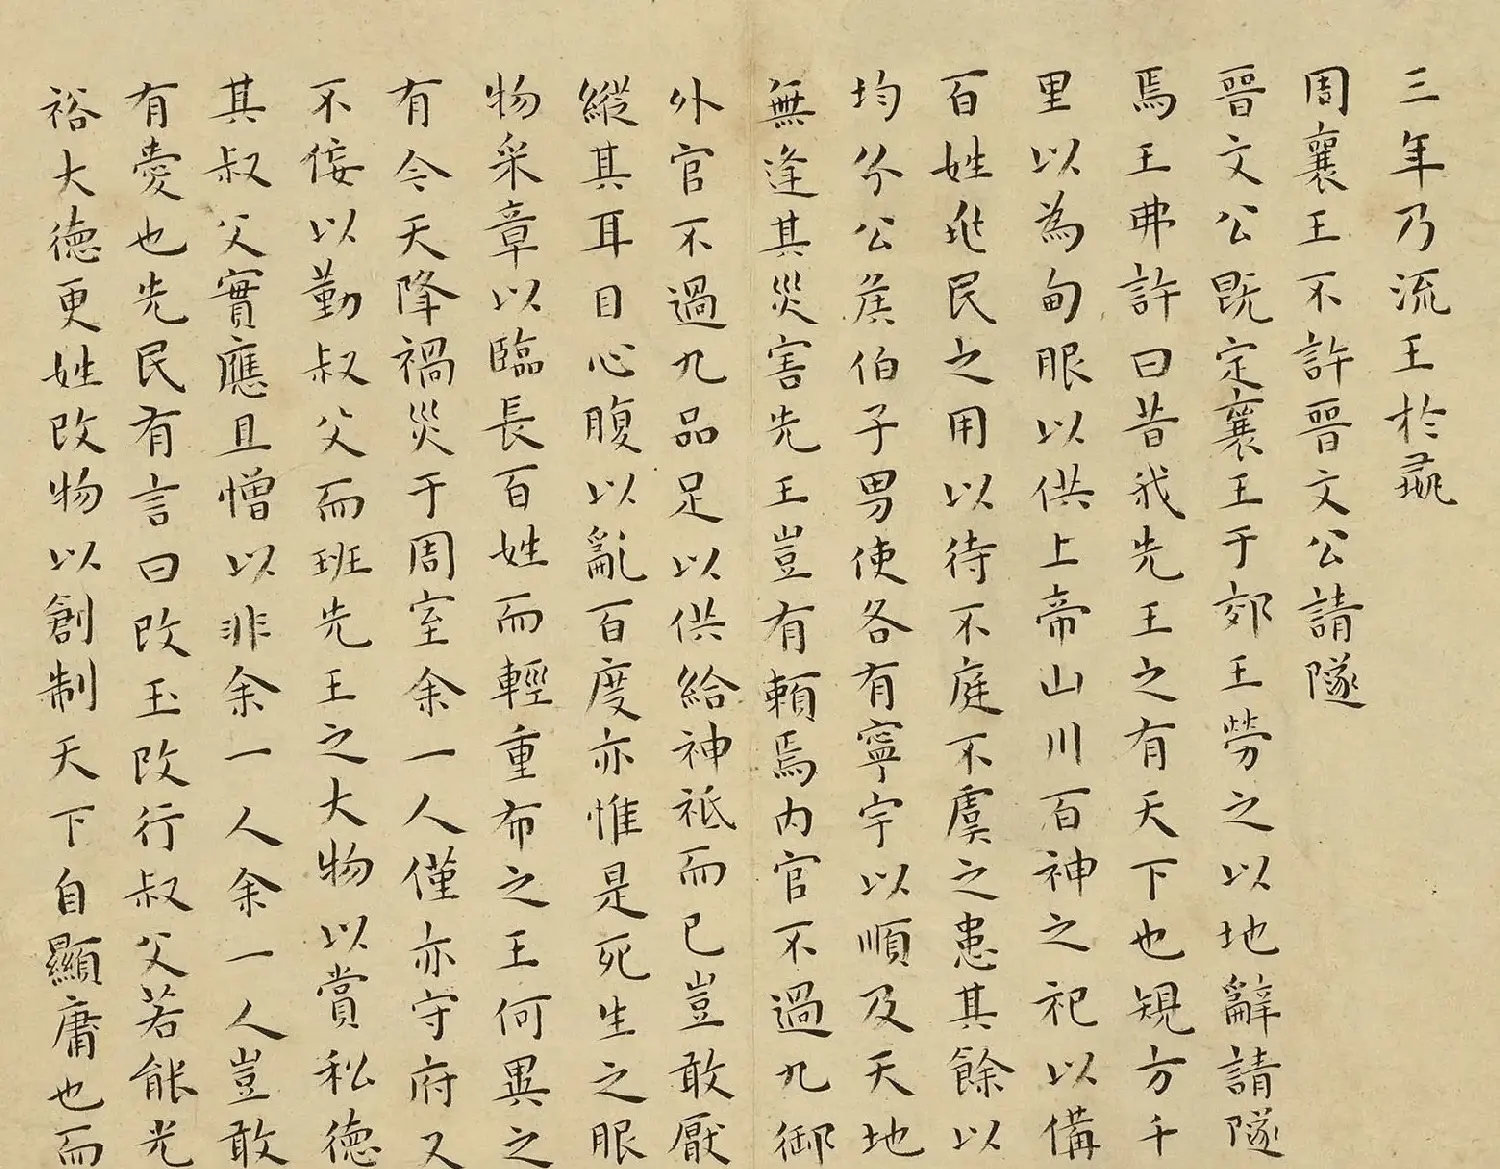 三年乃流王於彘
周襄王不許晉文公請隧
晉文公既定襄王于郊王勞之以地辭請隧
焉王弗許曰昔我先王之有天下也規方千
里以為甸服以供上帝山川百神之祀以備
百姓兆民之用以待不庭不虞之患其餘以
均分公侯伯子男使各有寧宇以順及天地
無逢其災害先王豈有賴焉內官不過九御
外官不過九品足以供給神祇而已豈敢厭
縱其耳目心腹以亂百度亦惟是死生之服
物采章以臨長百姓而輕重布之王何異之
有今天降禍災于周室余一人僅亦守府又
不佞以勤叔父而班先王之大物以賞私德
其叔父實應且憎以非余一人余一人豈敢
有愛也先民有言曰改玉改行叔父若能光
裕大德更姓改物以創制天下自顯庸也而